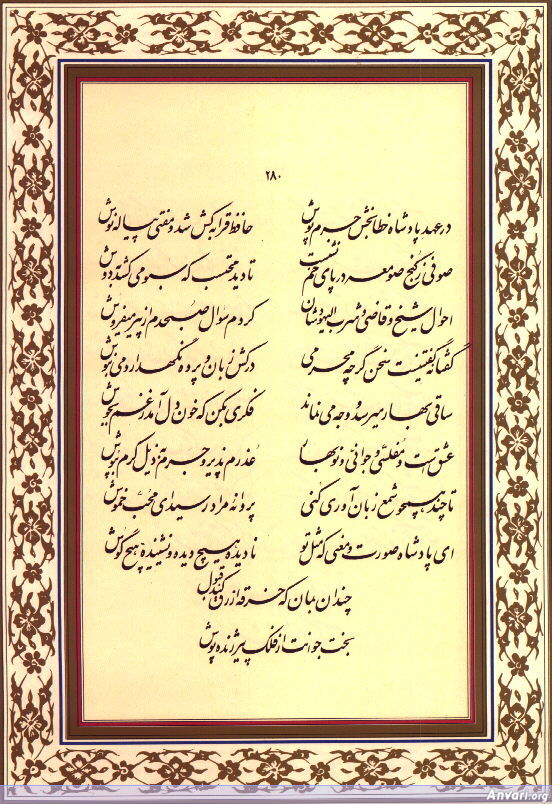 ۲۸۰
در عهد پادشاه خطابخش جرم پوش حافظ قرابه کش شد و مفتی پیاله نوش
صوفی ز کنج صومعه در پای خم نشست تا دید محتسب که سبو می کشد بدوش
احوال شیخ و قاضی و شرب الیهودشان کردم سؤال صبحدم از پیر میفروش
گفتا نگفتنیست سخن گرچه محرمی درکش زبان و پرده نگهدار و می بنوش
ساقی بهار میرسد و وجه می نماند فکری بکن که خون دل آمد ز غم بجوش
عشقست و مفلسی و جوانی و نوبهار عذرم پذیر و جرم بذیل کرم بپوش
تا چند همچو شمع زبان آوری کنی پروانه مراد رسید ای محب خموش
ای پادشاه صورت و معنی که مثل تو نادیده هیچ دیده و نشنیده هیچ گوش
چندان بمان که خرقه ازرق کند قبول
بخت جوانت از فلک پیر ژنده پوش
Anvari.org